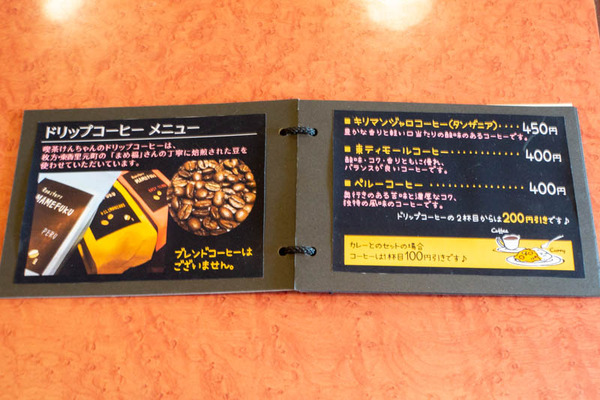 ドリップコーヒー メニュー
喫茶けんちゃんのドリップコーヒーは、
枚方・東香里元町の「まめ福」さんの丁寧に焙煎された豆を
使わせていただいています。
MAMEFUKU
PERU
KILIMANJARO
ブレンドコーヒーは
ございません。
■ キリマンジャロコーヒー(タンザニア)‥‥450円
豊かな香りと軽い口当たりの酸味のあるコーヒーです。
■ 東ティモールコーヒー ‥‥‥‥‥‥400円
酸味・コク・香りともに優れ、
バランスが良いコーヒーです。
■ ペルーコーヒー ‥‥‥‥‥‥‥‥400円
奥行きのある苦味と濃厚なコク、
独特の風味のコーヒーです。
ドリップコーヒーの2杯目からは200円引きです♪
カレーとのセットの場合
コーヒーは1杯目100円引きです♪
Coffee
Curry